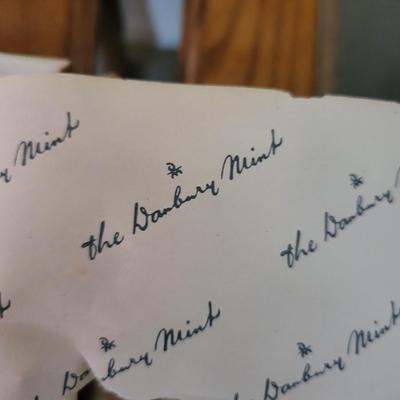 Mint
the Danbury Mint
the Danbury
the Danbury Mint
the Danbury Mint